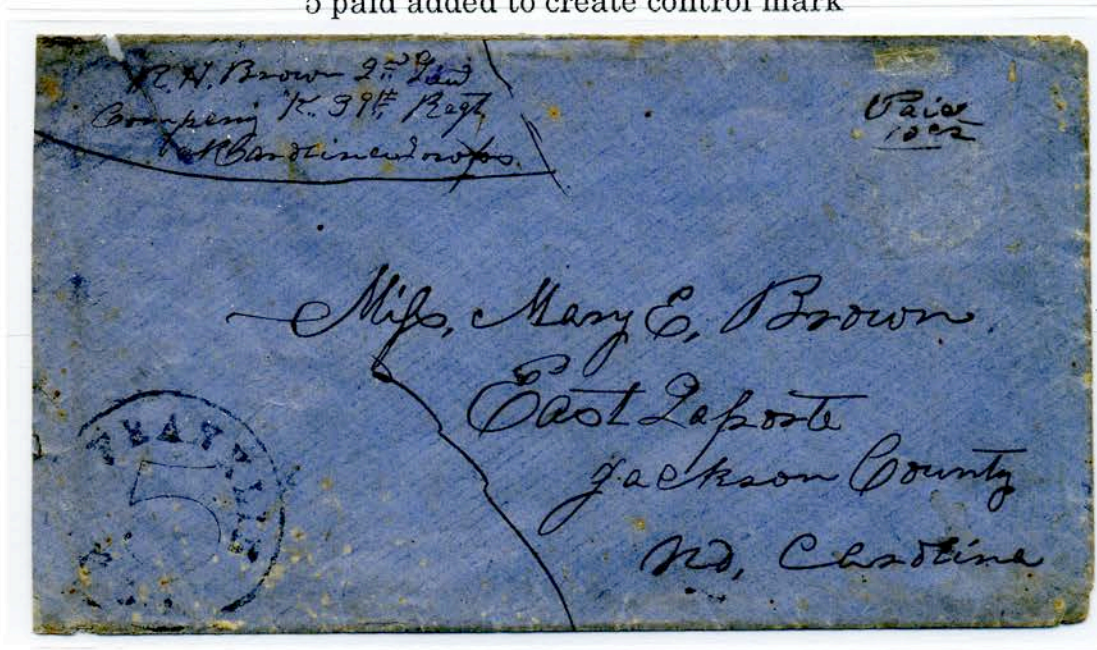 5 paid added to create control mark
R. H. Brown 2nd Lieut
Company K. 39th Regt
N Carolina Troops.
Paid
10 cts
Miss, Mary E, Brown
East Laporte
Jackson County
No, Carolina
5